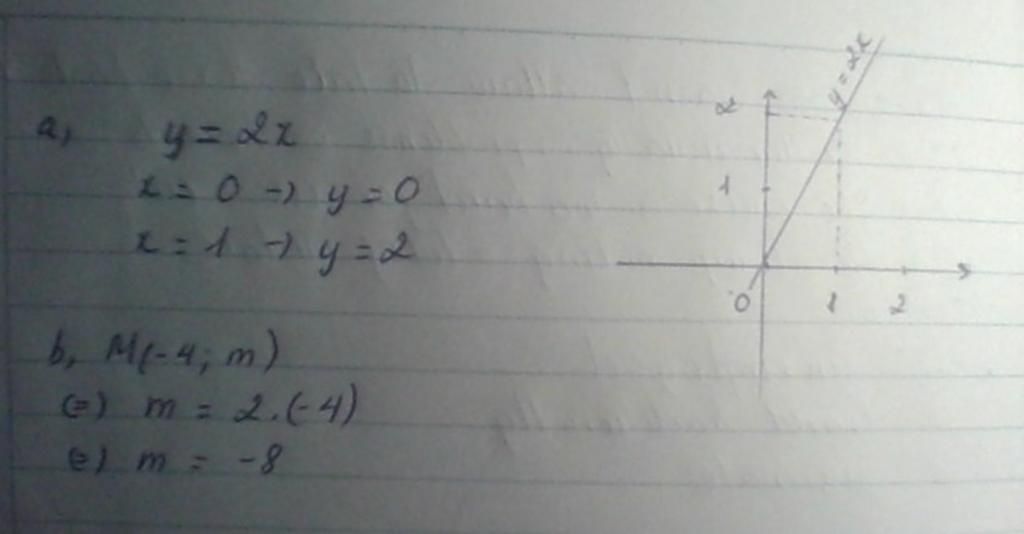 a, y = 2x
x = 0 → y = 0
x = 1 → y = 2
b, M(-4; m)
(=) m = 2.(-4)
(=) m = -8
y = 2x
2
1
0 1 2